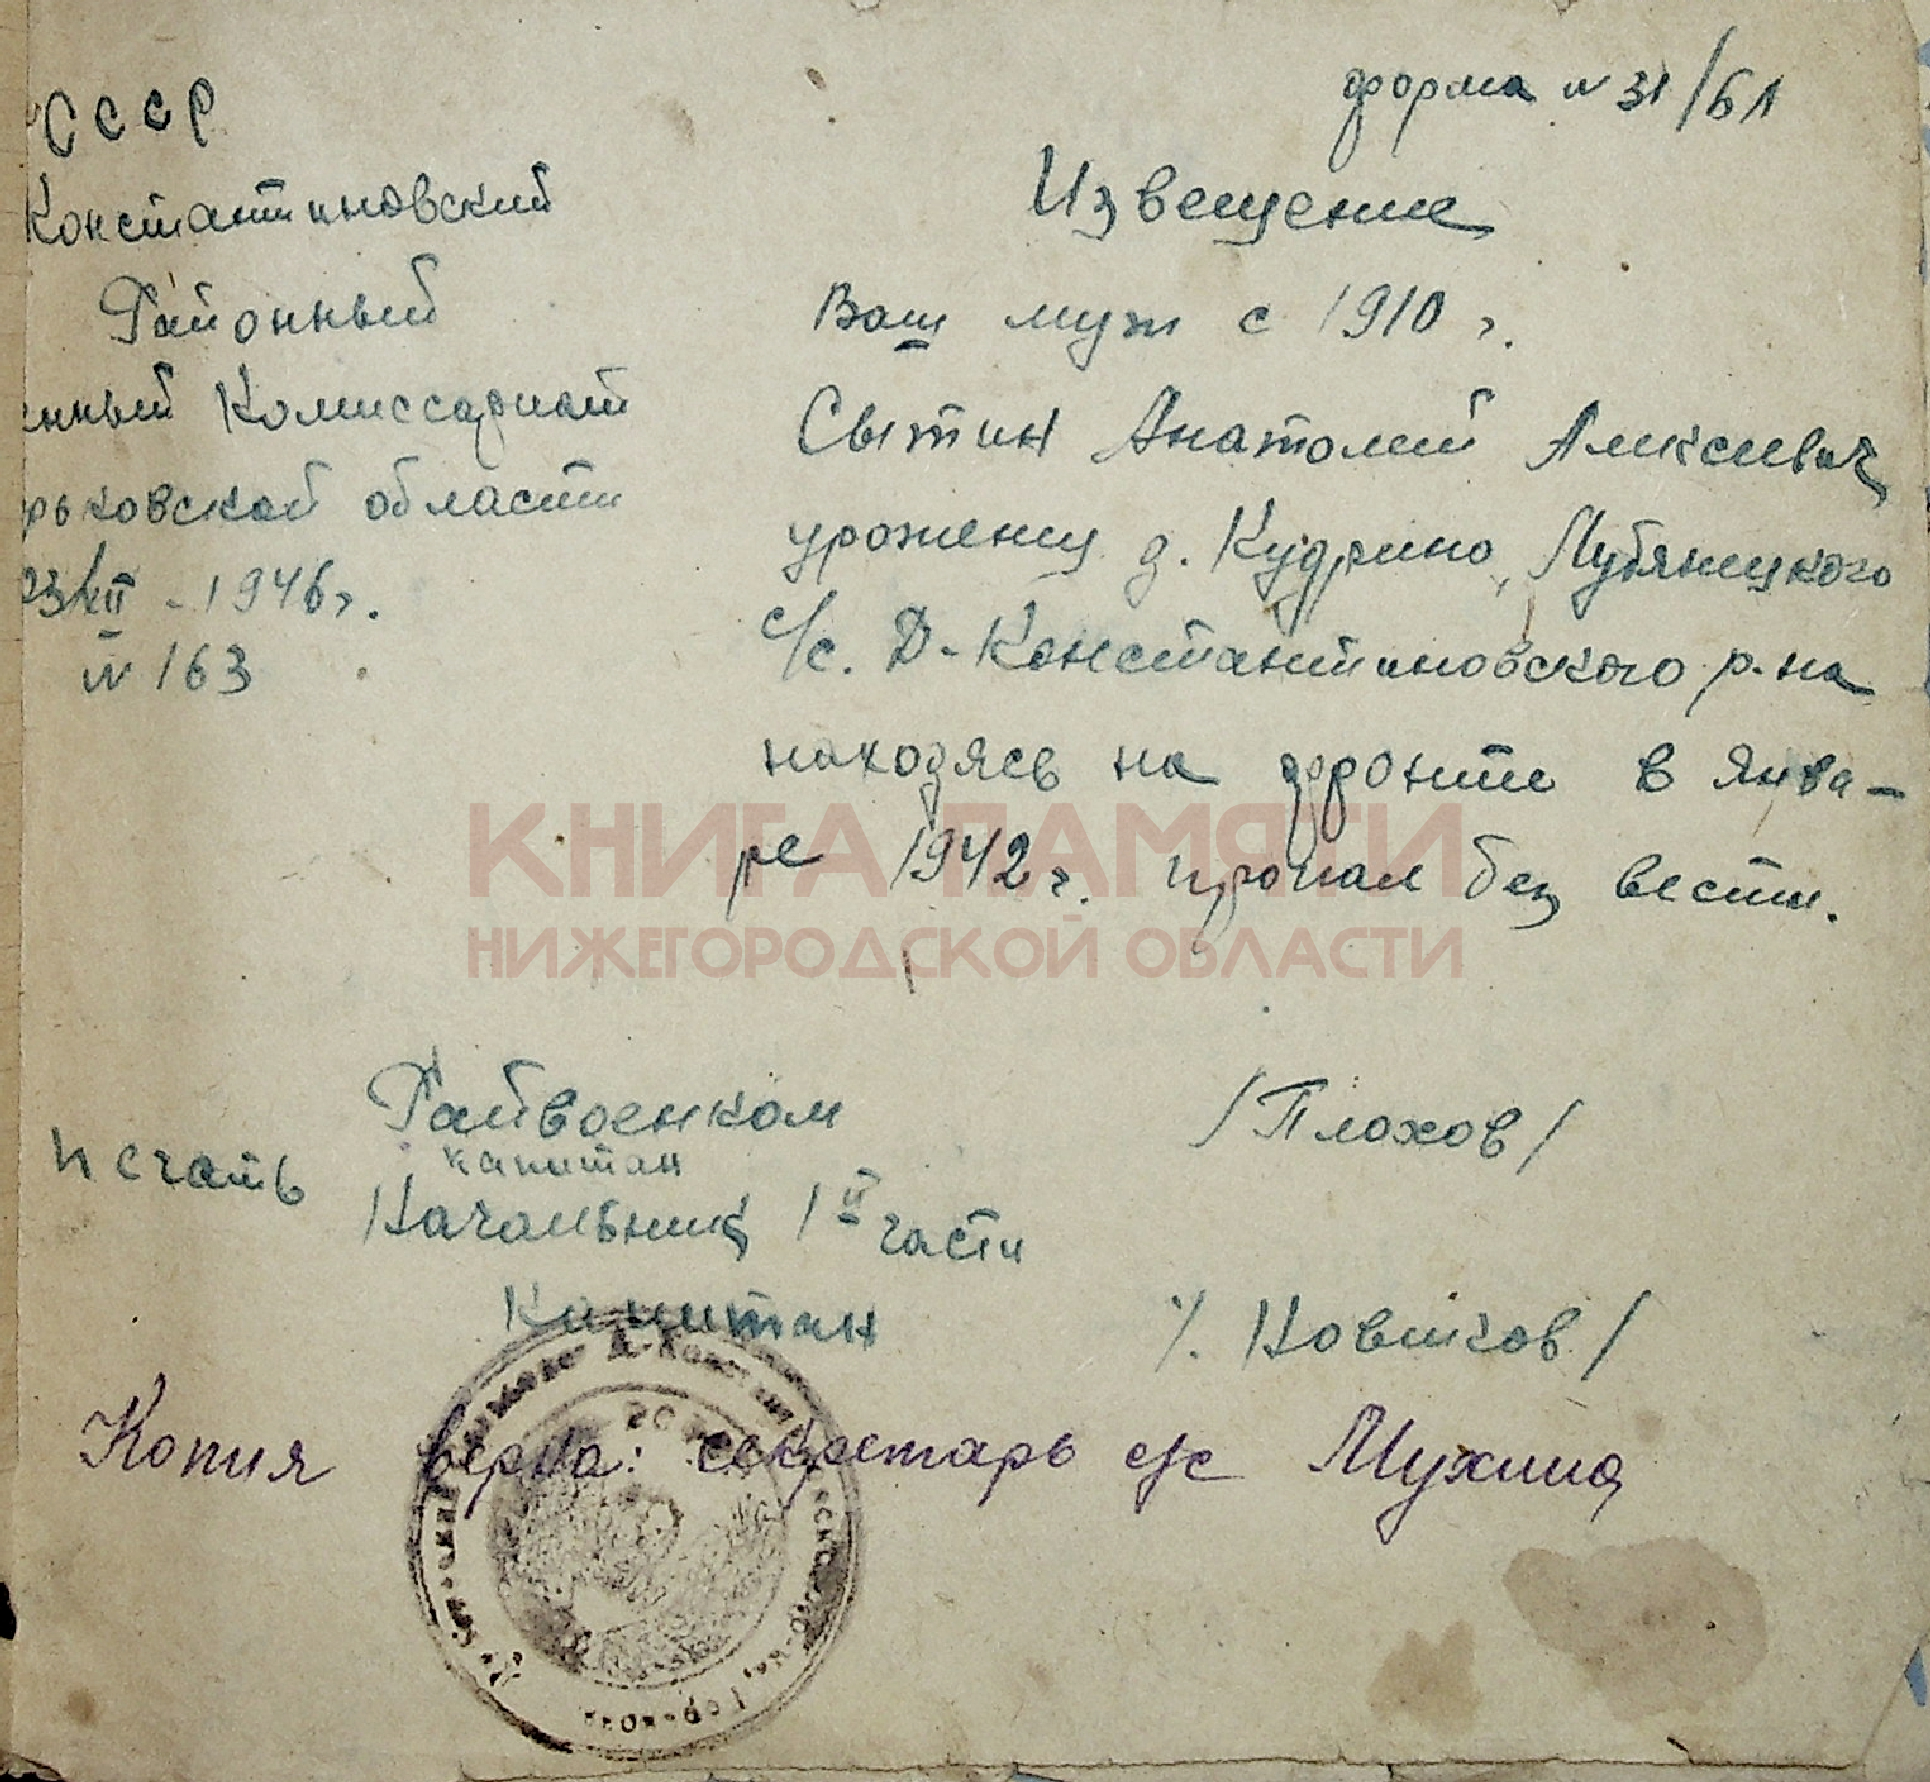 СССР
Константиновский
Районный
енный Комиссариат
рьковской области
23/XII - 1946г.
N 163
форма N 31/БЛ
Извещение
Ваш муж с 1910 г.
Сытин Анатолий Алексеевич
уроженец д. Кудрино, Лубянецкого
с/с. Д-Константиновского р-на
находясь на фронте в янва-
ре 1942 г. пропал без вести.
КНИГА ПАМЯТИ
НИЖЕГОРОДСКОЙ ОБЛАСТИ
Райвоенком
капитан
/Плохов/
печать
Начальник 1й части
Капитан
/. Новиков/
Копия верна: секретарь с/с Мухина